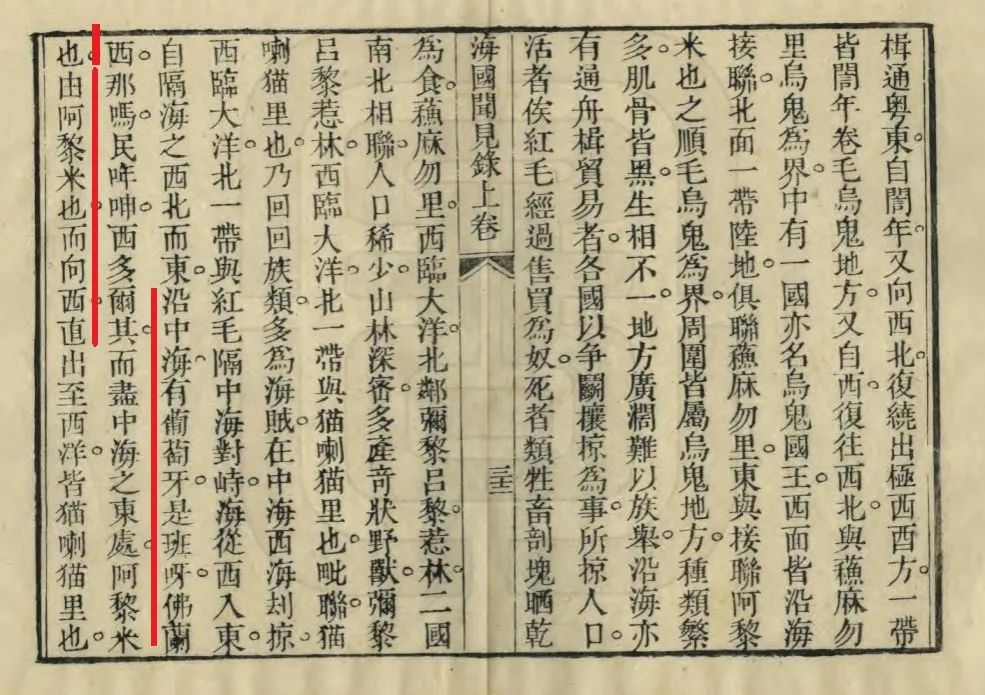 楫通粵東自閽年又向西北復繞出極西酉方一帶
皆閽年卷毛烏鬼地方又自西復往西北與蘓麻勿
里烏鬼為界中有一國亦名烏鬼國王西面皆沿海
接聯北面一帶陸地俱聯蘓麻勿里東與接聯阿黎
米也之順毛烏鬼為界周圍皆屬烏鬼地方種類繁
多肌骨皆黑生相不一地方廣濶難以族舉沿海亦
有通舟楫貿易者各國以爭鬬攘掠為事所掠人口
活者俟紅毛經過售買為奴死者類牲畜剖塊晒乾
海國聞見錄上卷
三十三
為食蘓麻勿里西臨大洋北鄰彌黎呂黎惹林二國
南北相聯人口稀少山林深密多產竒狀野獸彌黎
呂黎惹林西臨大洋北一帶與猫喇猫里也毗聯猫
喇猫里也乃回回族類多為海賊在中海西海刦掠
西臨大洋北一帶與紅毛隔中海對峙海從西入東
自隔海之西北而東沿中海有葡萄牙是班呀佛蘭
西那嗎民哖呻西多爾其而盡中海之東處阿黎米
也由阿黎米也而向西直出至西洋皆猫喇猫里也